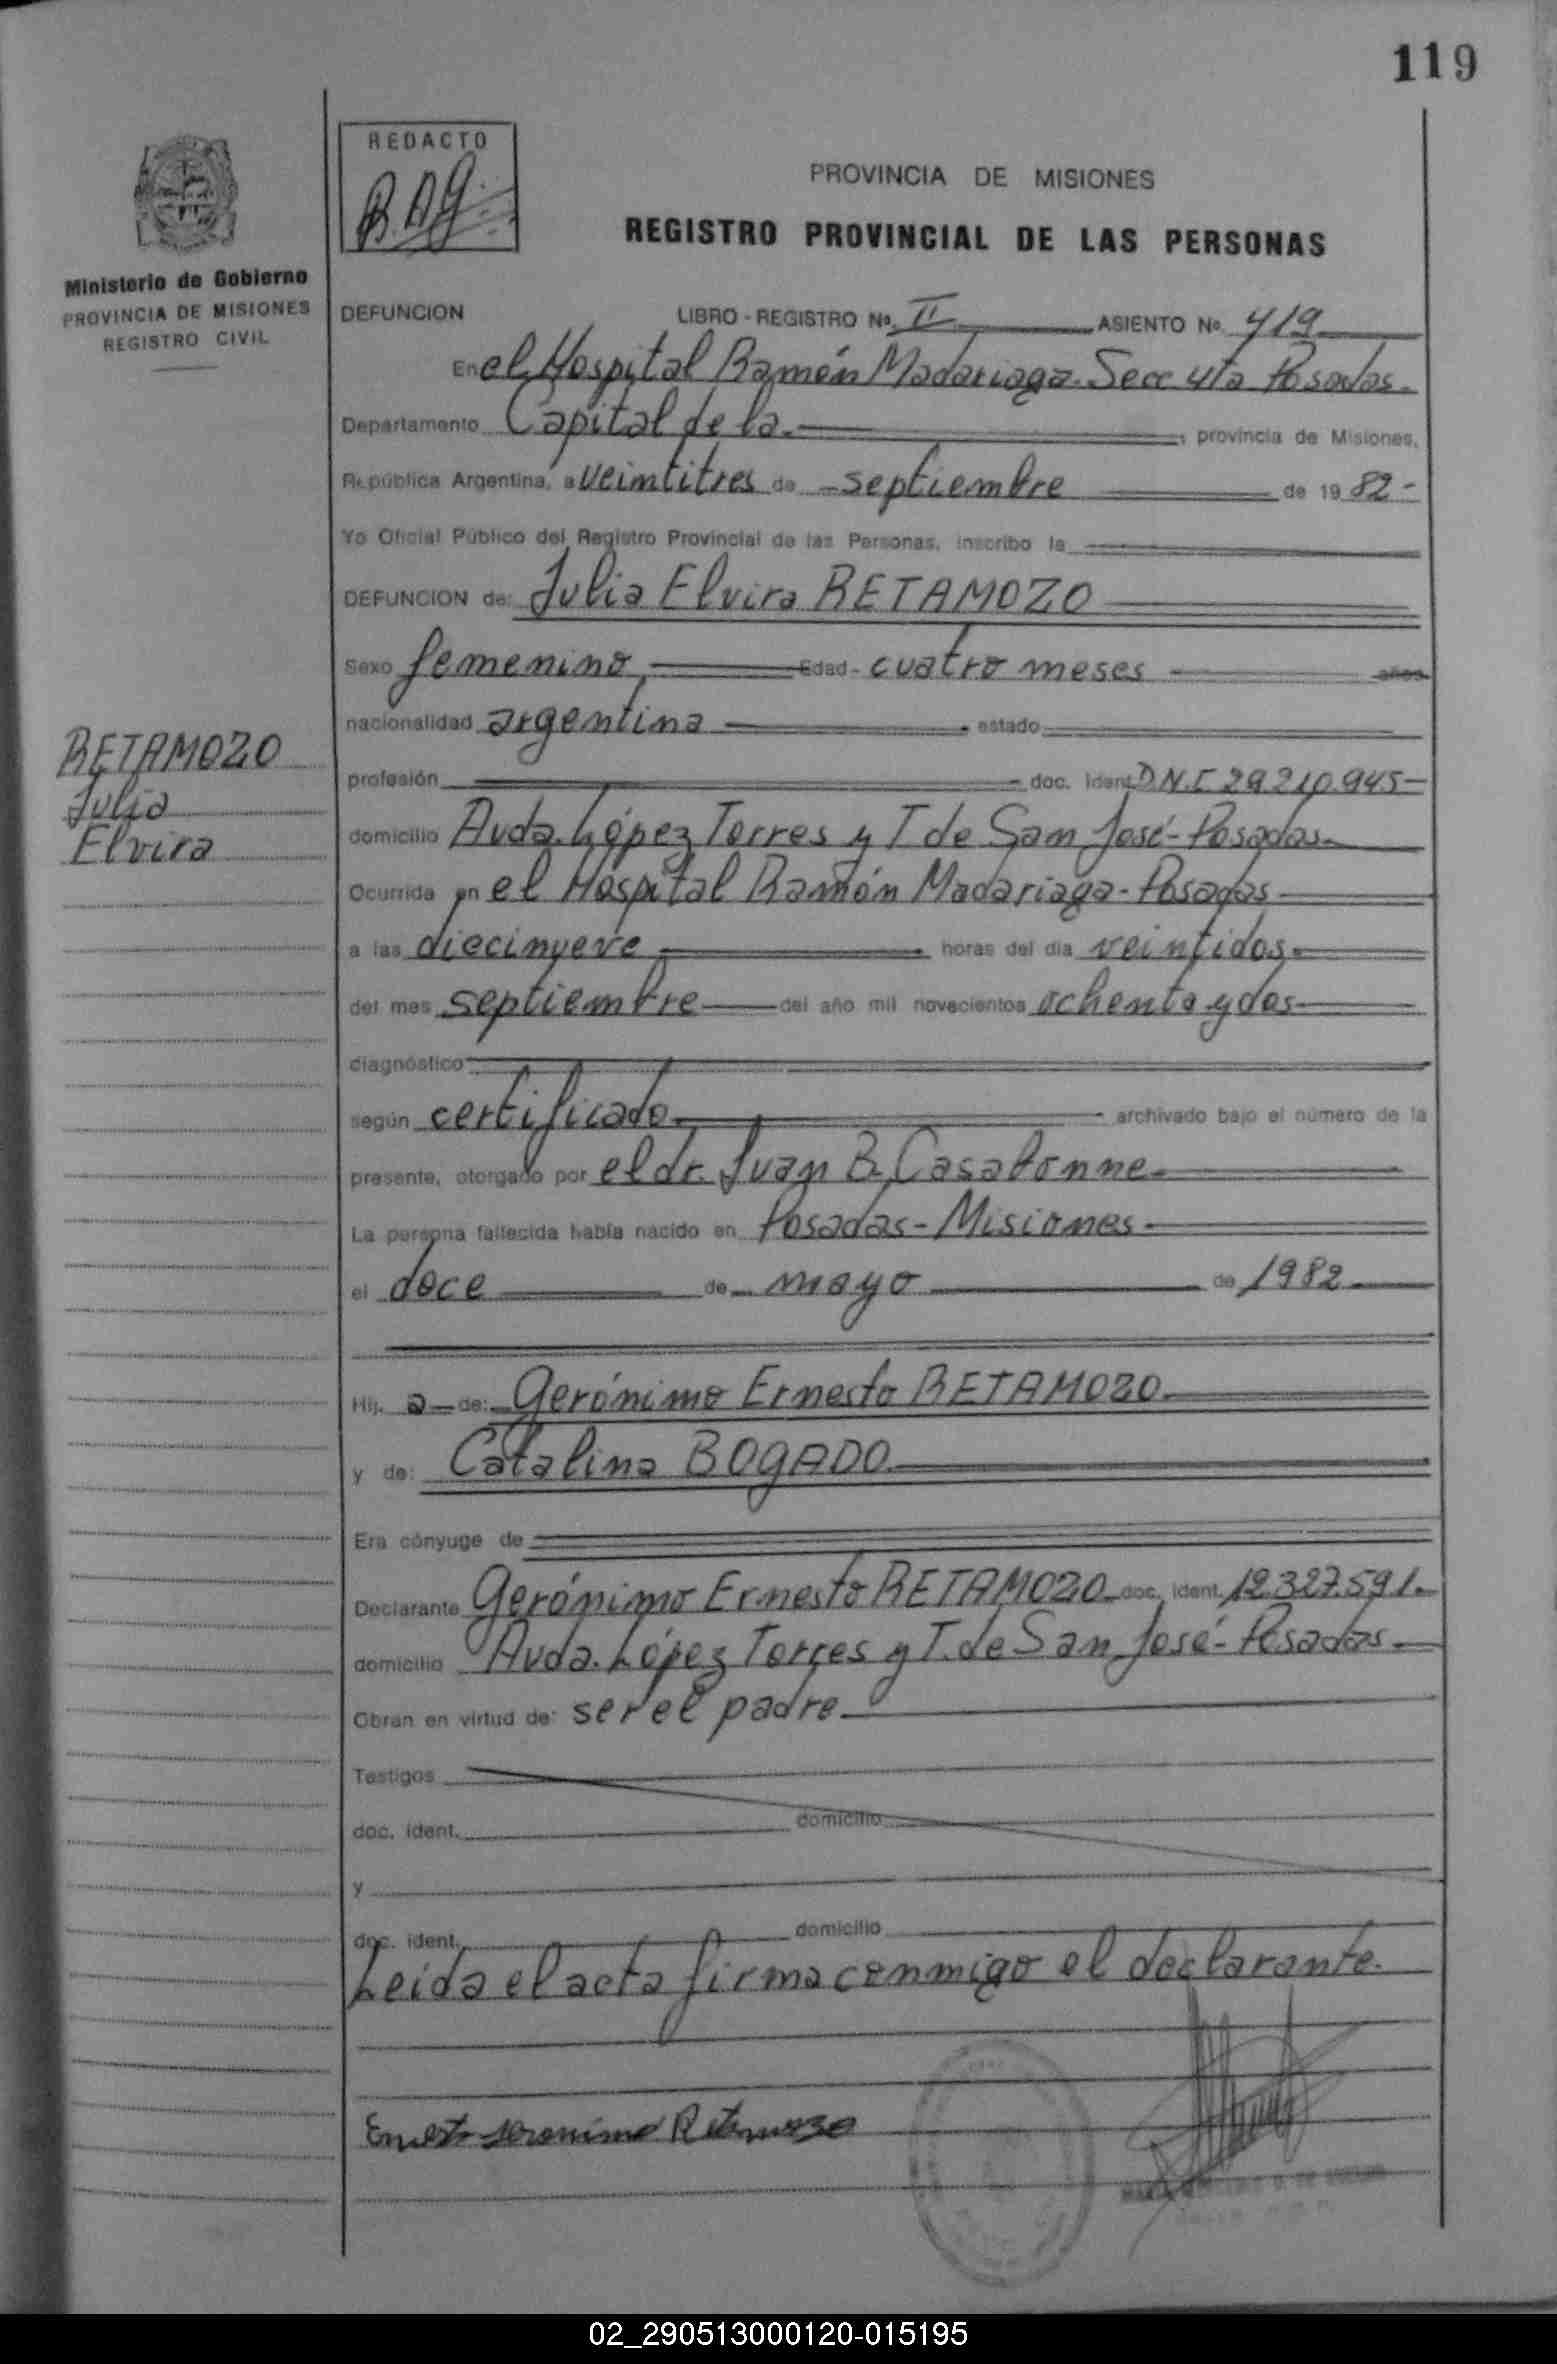 119
REDACTO
B.A.G.
PROVINCIA DE MISIONES
REGISTRO PROVINCIAL DE LAS PERSONAS
Ministerio de Gobierno
PROVINCIA DE MISIONES
REGISTRO CIVIL
DEFUNCION LIBRO - REGISTRO No. II ASIENTO No. 419
En el Hospital Ramón Madariaga. Secc 4ta Posadas.
Departamento Capital de la provincia de Misiones,
República Argentina, a veintitres de septiembre de 19 82 -
Yo Oficial Público del Registro Provincial de las Personas, inscribo la
DEFUNCION de: Julia Elvira RETAMOZO
Sexo femenino, Edad - cuatro meses años
nacionalidad argentina estado
RETAMOZO
Julia
Elvira
profesión doc. ident. D.N.I 29.210.945 -
domicilio Avda. López Torres y T de San José - Posadas.
Ocurrida en el Hospital Ramón Madariaga - Posadas
a las diecinueve horas del día veintidos.
del mes septiembre del año mil novecientos ochenta y dos
diagnóstico
según certificado archivado bajo el número de la
presente, otorgado por el dr. Juan B. Casabonne.
La persona fallecida había nacido en Posadas - Misiones
el doce de mayo de 1982
Hij a de: Gerónimo Ernesto RETAMOZO
y de: Catalina BOGADO
Era cónyuge de
Declarante Gerónimo Ernesto RETAMOZO doc. ident. 12.327.591.
domicilio Avda. López Torres y T. de San José - Posadas.
Obran en virtud de: ser el padre
Testigos
doc. ident. domicilio
y
doc. ident. domicilio
Leida el acta firma conmigo el declarante.
Ernesto Jeronimo Retamozo
02_290513000120-015195